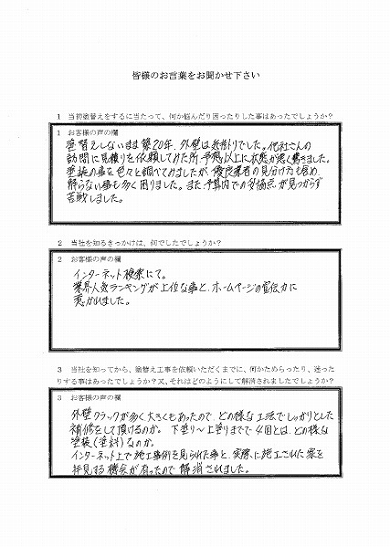 皆様のお言葉をお聞かせ下さい
1 当初塗替えをするに当たって、何か悩んだり困ったりした事はあったでしょうか?
1 お客様の声の欄
塗替えしないまま築20年、外壁は
訪問に見積りを依頼してみた所、予想以上に状態が悪く驚きました。
塗装の事を色々と調べてみましたが、優良業者の見分け方も含め
解らない事も多く困りました。また予算内での
苦戦しました。
2 当社を知るきっかけは、何でしたでしょうか?
2 お客様の声の欄
インターネット検索にて。
業界人気ランキングが上位な事と、ホームページの宣伝力に
惹かれました。
3 当社を知ってから、塗替え工事を依頼いただくまでに、何かためらったり、迷った
りする事はあったでしょうか?又、それはどのようにして解消されましたでしょうか?
3 お客様の声の欄
外壁クラックが多く大きくもあったので、どの様な工法でしっかりとした
補修をして頂けるのか。下塗り〜上塗りまでで4回とは、どの様な
塗装(塗料)なのか。
インターネット上で施工事例を見られた事と、実際に施工された家を
拝見する機会が有ったので解消されました。